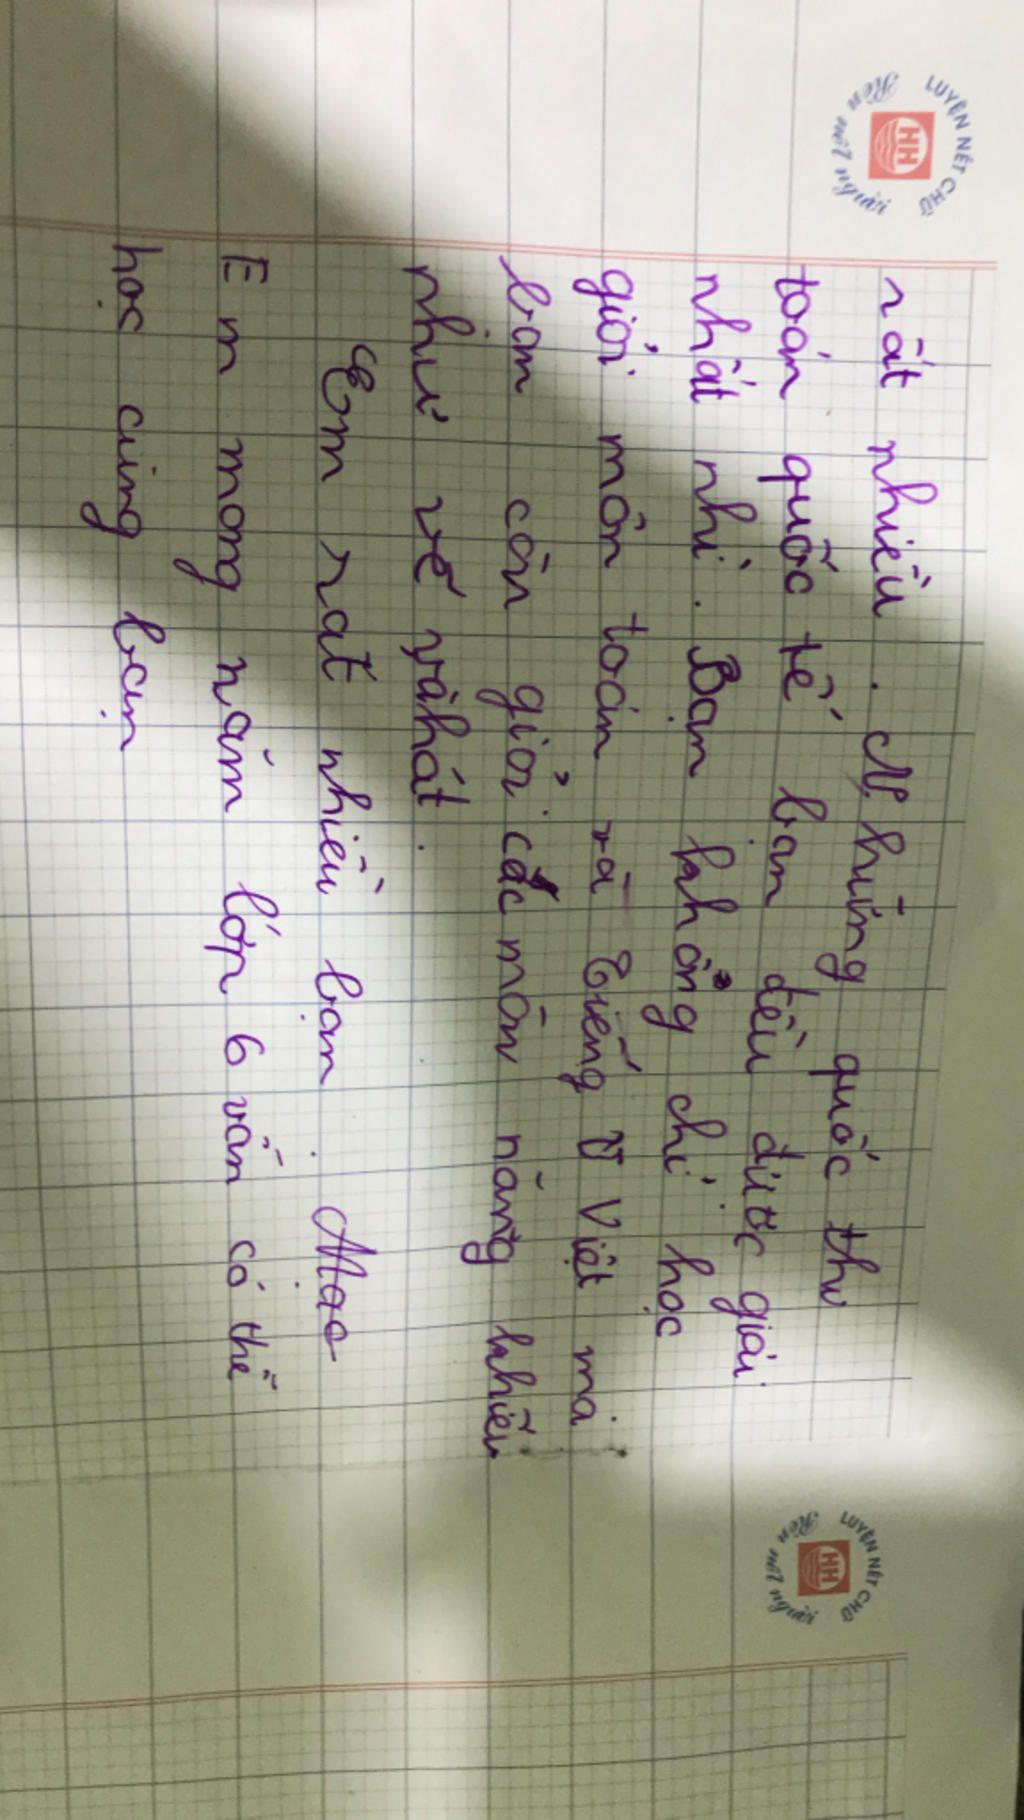 LUYỆN NÉT CHỮ
Rèn nết người
HH
rất nhiều. Những quốc thi
toán quốc tế bạn đều được giải
nhất nhì. Bạn không chỉ học
giỏi môn toán và Tiếng V Việt mà
bạn còn giỏi các môn năng khiếu
như vẽ và hát.
Em rất nhiều bạn. Mặc
Em mong năm lớp 6 vẫn có thể
học cùng bạn
LUYỆN NÉT CHỮ
Rèn nết người
HH